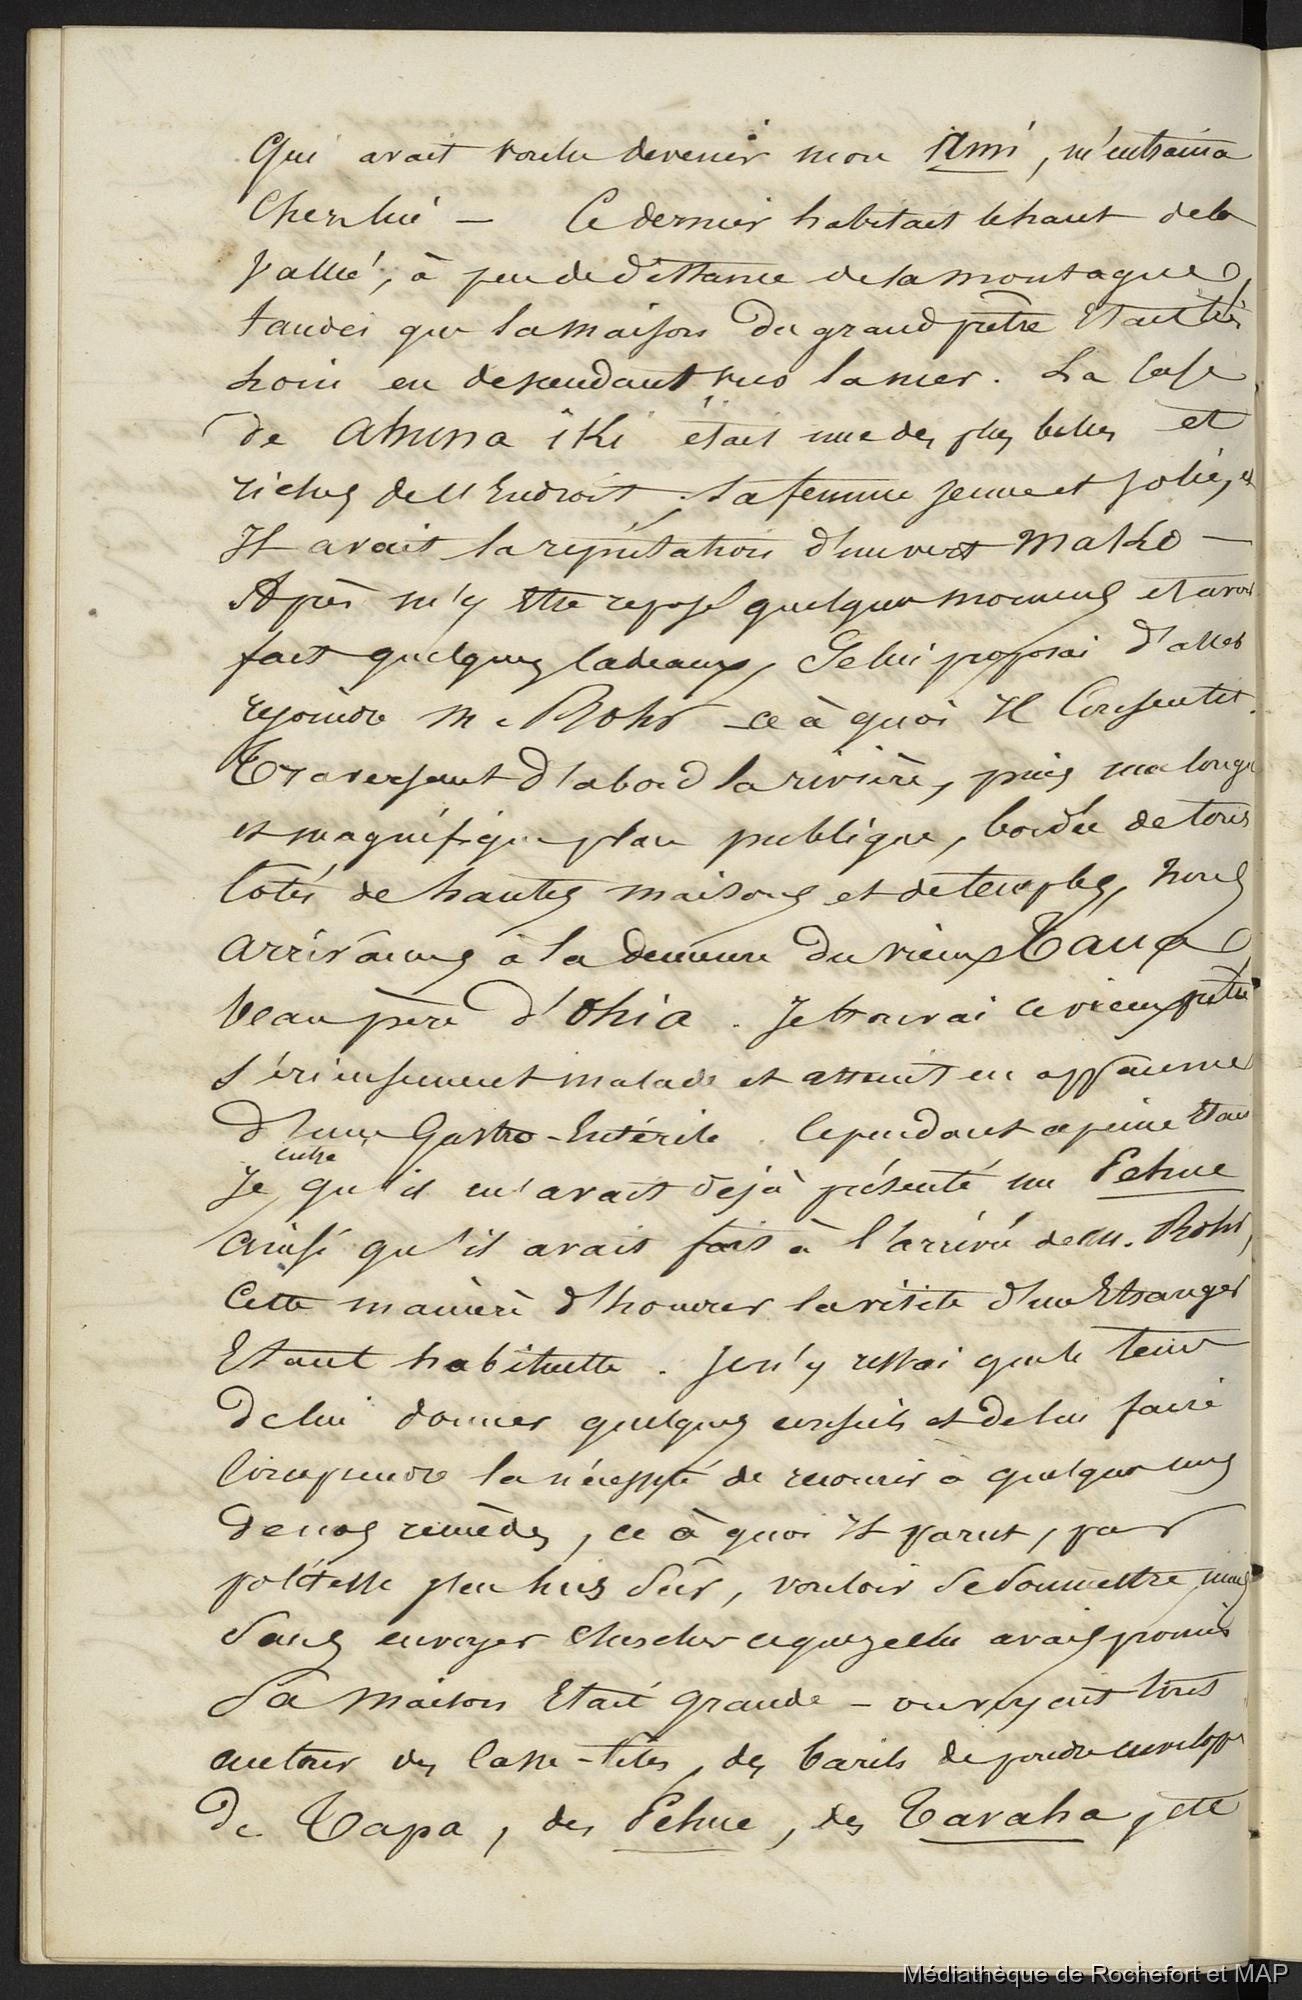 Qui avait voulu devenir mon Ami, m'entraina
Chez lui — Ce dernier habitait le haut de la
Vallée, à peu de distance de la montagne,
tandis que la maison du grand prêtre Etait très
loin en descendant vers la mer. La Case
de Ahuna iki était une des plus belles et
riches de l'Endroit, sa femme jeune et jolie, et
Il avait la réputation d'un vert Makō —
Après m'y être reposé quelques moments et avoir
fait quelques Cadeaux, Je lui proposai d'aller
rejoindre M. Rohr — ce à quoi Il Consentit.
Traversant d'abord la rivière, puis une longue
et magnifique place publique, bordée de tous
Cotés de hautes maisons et de temples, nous
arrivâmes à la demeure du vieux Taua
beau père d'Ohia. Je trouvai ce vieux prêtre
sérieusement malade et atteint en apparence
d'une Gastro-Entérite. Cependant à peine Etais
Je entré qu'il m'avait déjà présenté un Pehue
Ainsi qu'il avait fait à l'arrivée de M. Rohr,
Cette manière d'honorer la visite d'un Etranger
Etant habituelle. Je n'y restai que le tems
de lui donner quelques conseils et de lui faire
Comprendre la nécessité de recourir à quelques uns
de nos remèdes, ce à quoi Il parut, par
politesse bien sûr, vouloir se soumettre, mais
Sans envoyer Chercher ce que je lui avais promis
Sa maison Etait grande — on voyait tout
autour des Casse-têtes, des barils de poudre enveloppés
De Tapa, des Pehue, des Tavaha, et